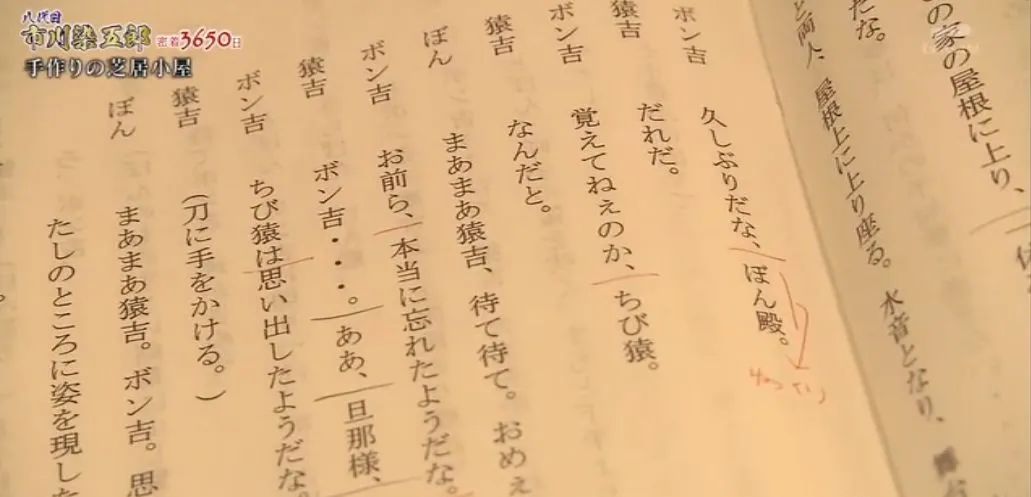 八代目
市川染五郎 密着3650日
手作りの芝居小屋
の家の屋根に上り、
だな。
と両人、屋根上に上り座る。水音となり、
ボン吉 久しぶりだな、ぽん殿。
猿吉 だれだ。
ボン吉 覚えてねぇのか、ちび猿。
猿吉 なんだと。
ぽん まあまあ猿吉、待て待て。おめぇ
ボン吉 お前ら、本当に忘れたようだな。
猿吉 ボン吉・・・。ああ、旦那様、
ボン吉 ちび猿は思い出したようだな。
猿吉 (刀に手をかける。)
ぽん まあまあ猿吉。ボン吉。思
たしのところに姿を現した